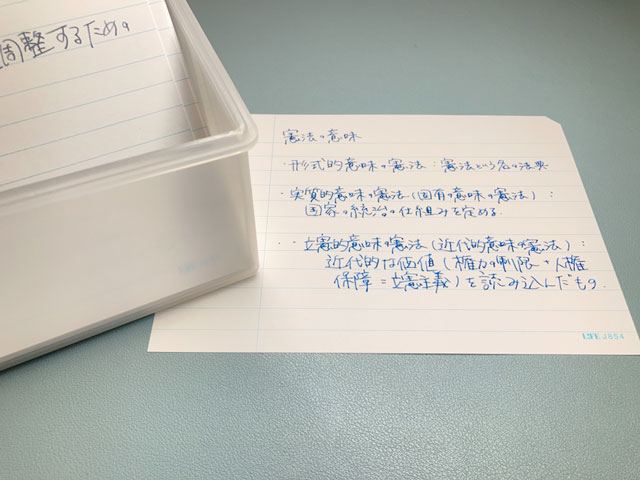 調整するため。
憲法の意味
・形式的意味の憲法：憲法という名の法典
・実質的意味の憲法（固有の意味の憲法）：
国家の統治の仕組みを定める。
・立憲的意味の憲法（近代的意味の憲法）：
近代的な価値（権力の制限・人権
保障＝立憲主義）を読み込んだもの。
LIFE J884